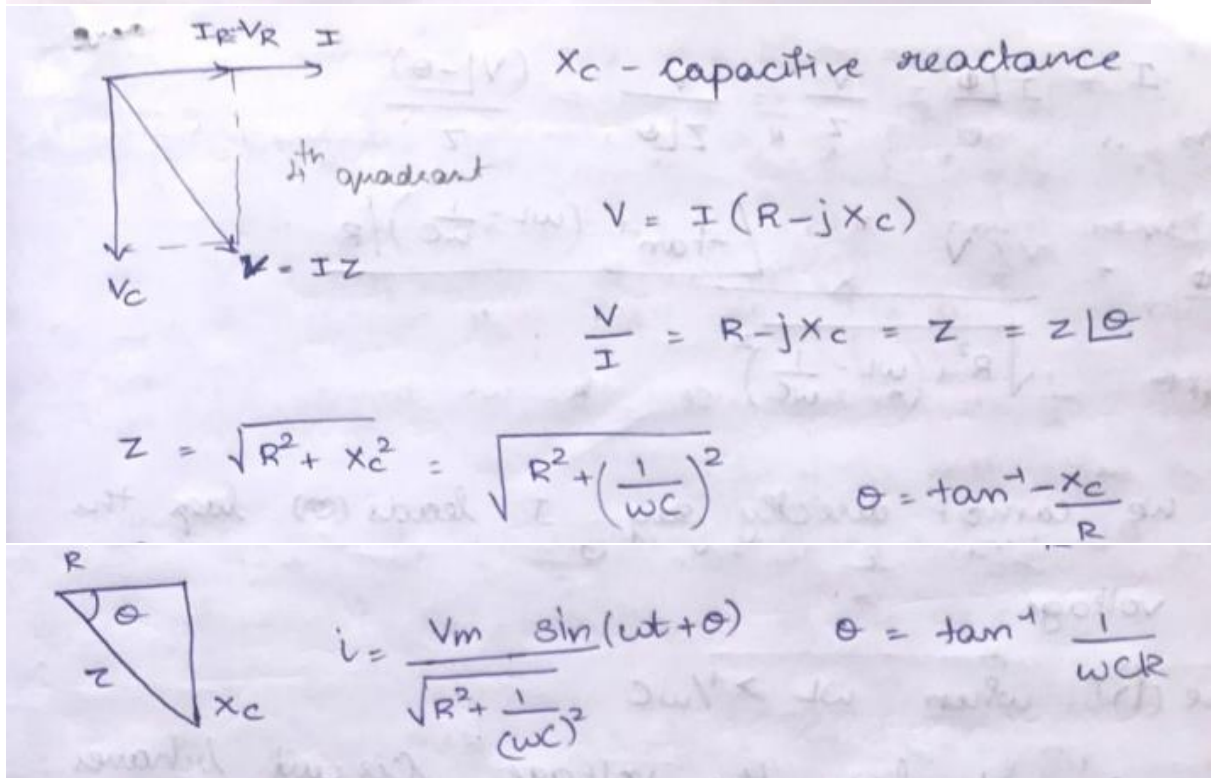 I_R=V_R I
X_C - capacitive reactance
4th quadrant
V = I(R-jX_C)
V_C
V = IZ
V/I = R-jX_C = Z = Z∠θ
Z = √(R²+ X_C²) = √(R²+(1/ωC)²)
θ = tan⁻¹ -X_C/R
R
θ
Z
X_C
i = Vm sin(ωt+θ) / √(R²+ 1/(ωC)²)
θ = tan⁻¹ 1/ωCR